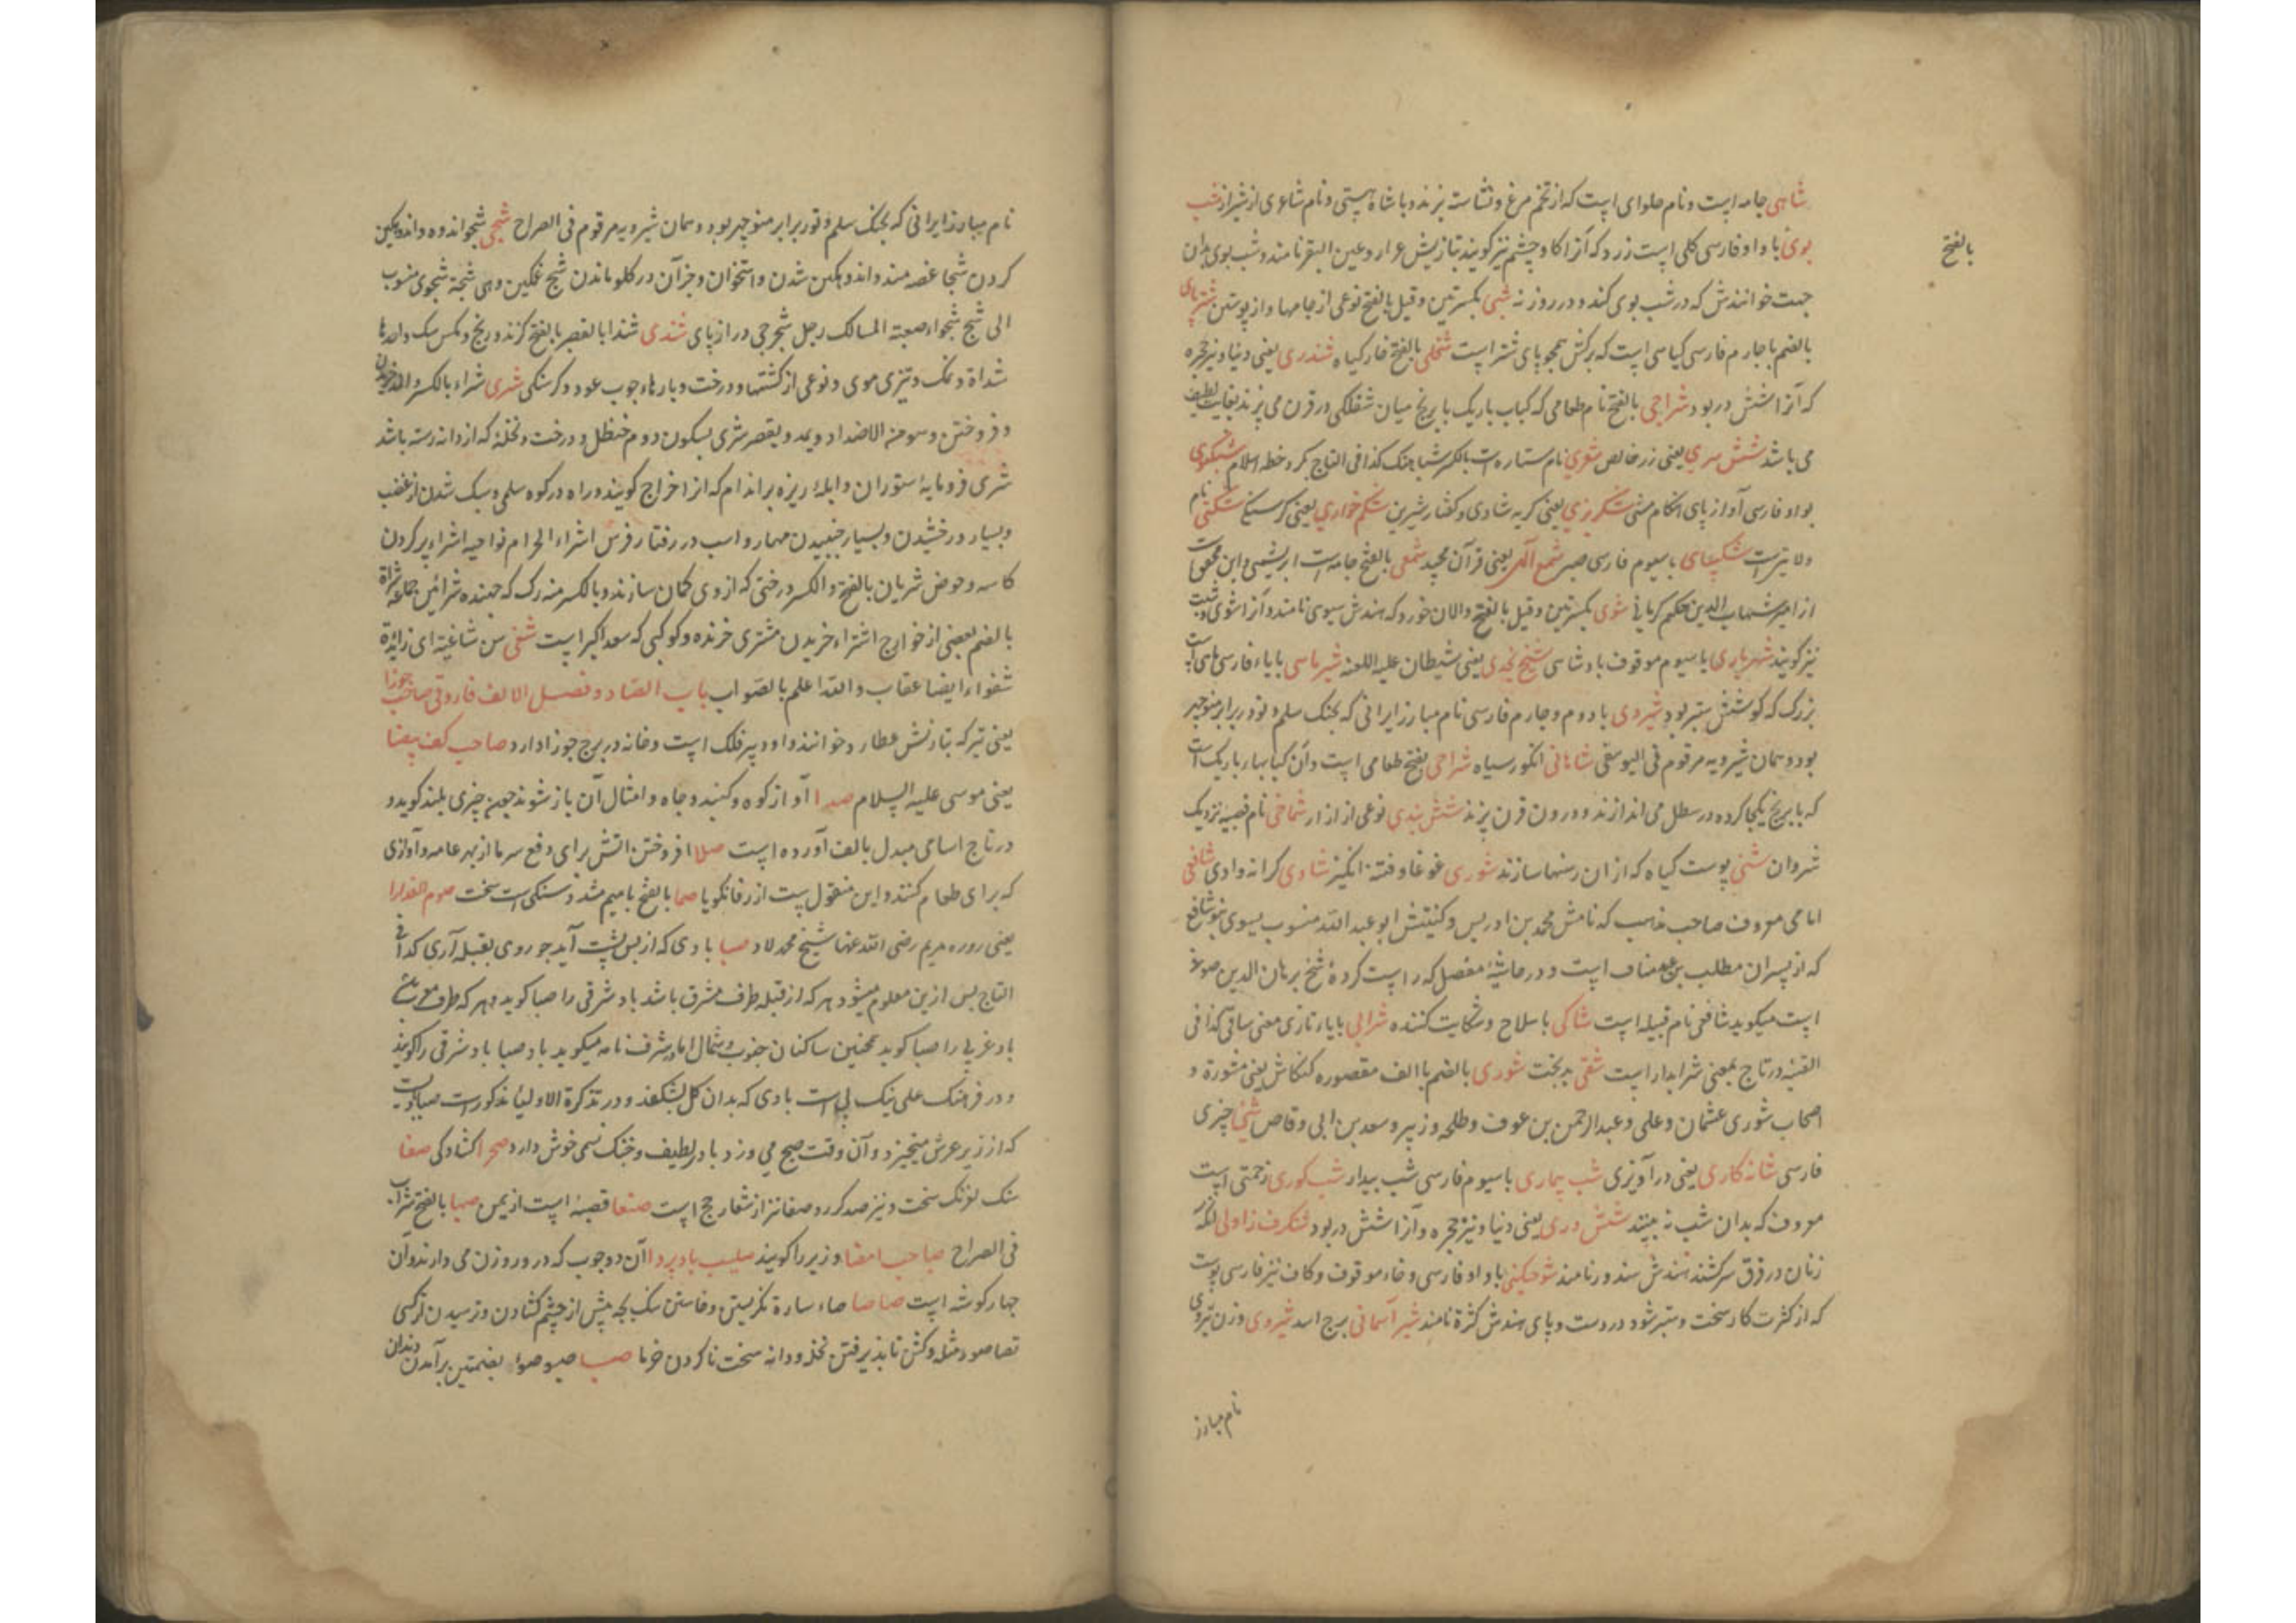 شاهی جامه ایست و نام حلوای ایست که از تخم مرغ و نشاسته پزند و با شاه هستی و نام شاعری از شیراز شب
بوی با واو فارسی کلی است زرد که آنرا کاو چشم نیز کویند بتازیش عرار و عین البقر نامند و شب بوی بدان
بالفتح
جهت خوانندش که در شب بوی کند و در روز نه شبی بکسرتین و قیل بالفتح نوعی از جامها و از پوستین شترپای
بالضم با جارم فارسی کیاسی است که برکش همچو پای شتر است بالفتح خار کیاه شندری یعنی دنیا و نیز حجره
که آنرا شش در بود شراحی بالفتح نام طعامی که کباب باریک با برنج میان در فرن می پزند بغایت لطیف
می باشد شش سری یعنی زر خالص شعری نام ستاره است بالکسر شباهنک کذا فی التاج
بواو فارسی آواز پای شکرریزی یعنی کریه شادی و کفتار شیرین شکم خواری یعنی کرسنکی نام
ولایتی است شکیبای با سیوم فارسی صبر شمع الهی یعنی قرآن مجید شمعی بالفتح جامه است ابریشمی
از امیر شهاب الدین حکیم کرمانی شوی بکسرتین و قیل بالفتح والان خورد که هندش سیوی نامند و آنرا شوی
نیز کویند شهریاری با سیوم موقوف بادشاسی شیخ نجدی یعنی شیطان علیه اللعنه شیرماسی بایاء فارسی ماهی است
بزرک که کوشتش ستبر بود شیروی با دوم و جارم فارسی نام مبارز ایرانی که بجنک سلم و تور برابر منوچهر
بود و همان شیرویه مرقوم فی الیوسفی شاهانی انکور سیاه شراحی بفتح طعامی است و آن کبابها باریک است
که با برنج یکجا کرده در سطل می اندازند و درون فرن پزند شش بندی نوعی از ازار شماخی نام قصبه نزدیک
شروان شنی پوست کیاه که از آن رسنها سازند شوری غوغا و فتنه انکیز شاوی کرانه وادی شافعی
امامی معروف صاحب مذهب که نامش محمد بن ادریس و کنیتش ابو عبد الله منسوب بسوی بنو شافع
که از پسران مطلب بن عبد مناف است و در حاشیه مفصل که راست کرده شیخ برهان الدین
است میکوید شافعی نام قبیله است شاکی با سلاح و شکایت کننده شرابی بایاء تازی معنی ساقی کذا فی
القنیه در تاج بمعنی شرابدار است شقی بدبخت شوری بالضم با الف مقصوره کنکاش یعنی مشورة و
اصحاب شوری عثمان و علی و عبد الرحمن بن عوف و طلحه و زبیر و سعد بن ابی وقاص چیزی
فارسی شانه کاری یعنی درآویزی شب بیماری با سیوم فارسی شب بیدار شب کوری زحمتی است
معروف که بدان شب نه بیند شش دری یعنی دنیا و نیز حجره و آنرا شش در بود شنکرف زاولی آنکه
زنان در فرق سر کشند هندش سندور نامند با واو فارسی و خاء موقوف و کاف نیز فارسی پوست
که از کثرت کار سخت و ستبر شود در دست و پای هندش نامند شیر آسمانی برج اسد شیروی وزن نیروی
نام مبارز
نام مبارز ایرانی که بجنک سلم و تور برابر منوچهر بود و همان شیرویه مرقوم فی الصراح شجی شجو اندوه و اندوهکین
کردن شجا غصه مند و اندوهکین شدن و استخوان و جز آن در کلو ماندن شج غمکین وهی شجیة شجوی منسوب
الی شج شجواء صعبة المسالک رجل شجوجی دراز پای شذی شذا بالقصر بالفتح کزند و رنج و مکس سک واحدها
شذاة و نمک و تیزی موی و نوعی از کشتیها و درخت و پارهاء چوب عود و کرسنکی شری شراء بالکسر والمد خریدن
و فروختن وهو من الاضداد و یمد و یقصر شری بسکون دوم حنظل و درخت و نخلة که از دانه رسته باشد
شری فرومایه ستوران و ابله ریزه بر اندام که از اخراج کویند و راه در کوه سلمی و سبک شدن از غضب
و بسیار درخشیدن و بسیار جنبیدن مهار و اسب در رفتار فرس اشراء الحرام نواحیه اشراء پر کردن
کاسه و حوض شریان بالفتح والکسر درختی که از وی کمان سازند و بالکسر رک که جهنده شرائین جماعه شراة
بالضم بعضی از خوارج اشتراء خریدن مشتری خرنده و کوکبی که سعد اکبر است شغی سن شاغیة ای زائدة
شغواء ایضا عقاب والله اعلم بالصواب باب الصاد و فصل الالف فاروقی صاحب جوزا
یعنی تیر که بتازنش عطارد خوانند و او دبیر فلک است و خانه در برج جوزا دارد صاحب کف بیضا
یعنی موسی علیه السلام صدا آواز کوه و کنبد و چاه و امثال آن باز شوند چون چیزی بلند کوید و
در تاج اسامی مبدل بالف آورده است صلا افروختن اتش برای دفع سرما از بهر عامه و آوازی
که برای طعام کنند و این منقول است از زفانکویا صما بالفتح با میم مشدد سنکی است سخت صوم العذرا
یعنی روزه مریم رضی الله عنها شیخ محمد لاد صبا بادی که از پس پشت آید چو روی بقبله آری کذا فی
التاج پس ازین معلوم میشود هر که از قبله طرف مشرق باشد باد شرقی را صبا کوید و هر که طرف مغرب
باد غربی را صبا کوید همچنین ساکنان جنوب و شمال اما در شرف نامه میکوید باد صبا باد شرقی را کویند
و در فرهنک علی نیک پی است بادی که بدان کل بشکفد و در تذکرة الاولیا مذکور است صبا بادیست
که از زیر عرش میخیزد و آن وقت صبح می وزد بادی لطیف و خنک نسیمی خوش دارد صحرا کشادکی صفا
سنک لغزنک سخت و نیز ضد کدر و صفا نیز از شعار حج است صنعا قصبه ایست از یمن صهبا بالفتح شراب
فی الصراح صاحب امضا وزیر را کویند صلیب باد پروا آن دو چوب که در روزن می دارند و آن
چهار کوشه است صاصا صاء ساءة نکریستن و خاستن سک بچه پیش از چشم کشادن و ترسیدن از کسی
تصاصو مثله و کشن ناپذیرفتن نخل و دانه سخت ناکردن خرما صبا صبو صبوء بضمتین برآمدن دندان